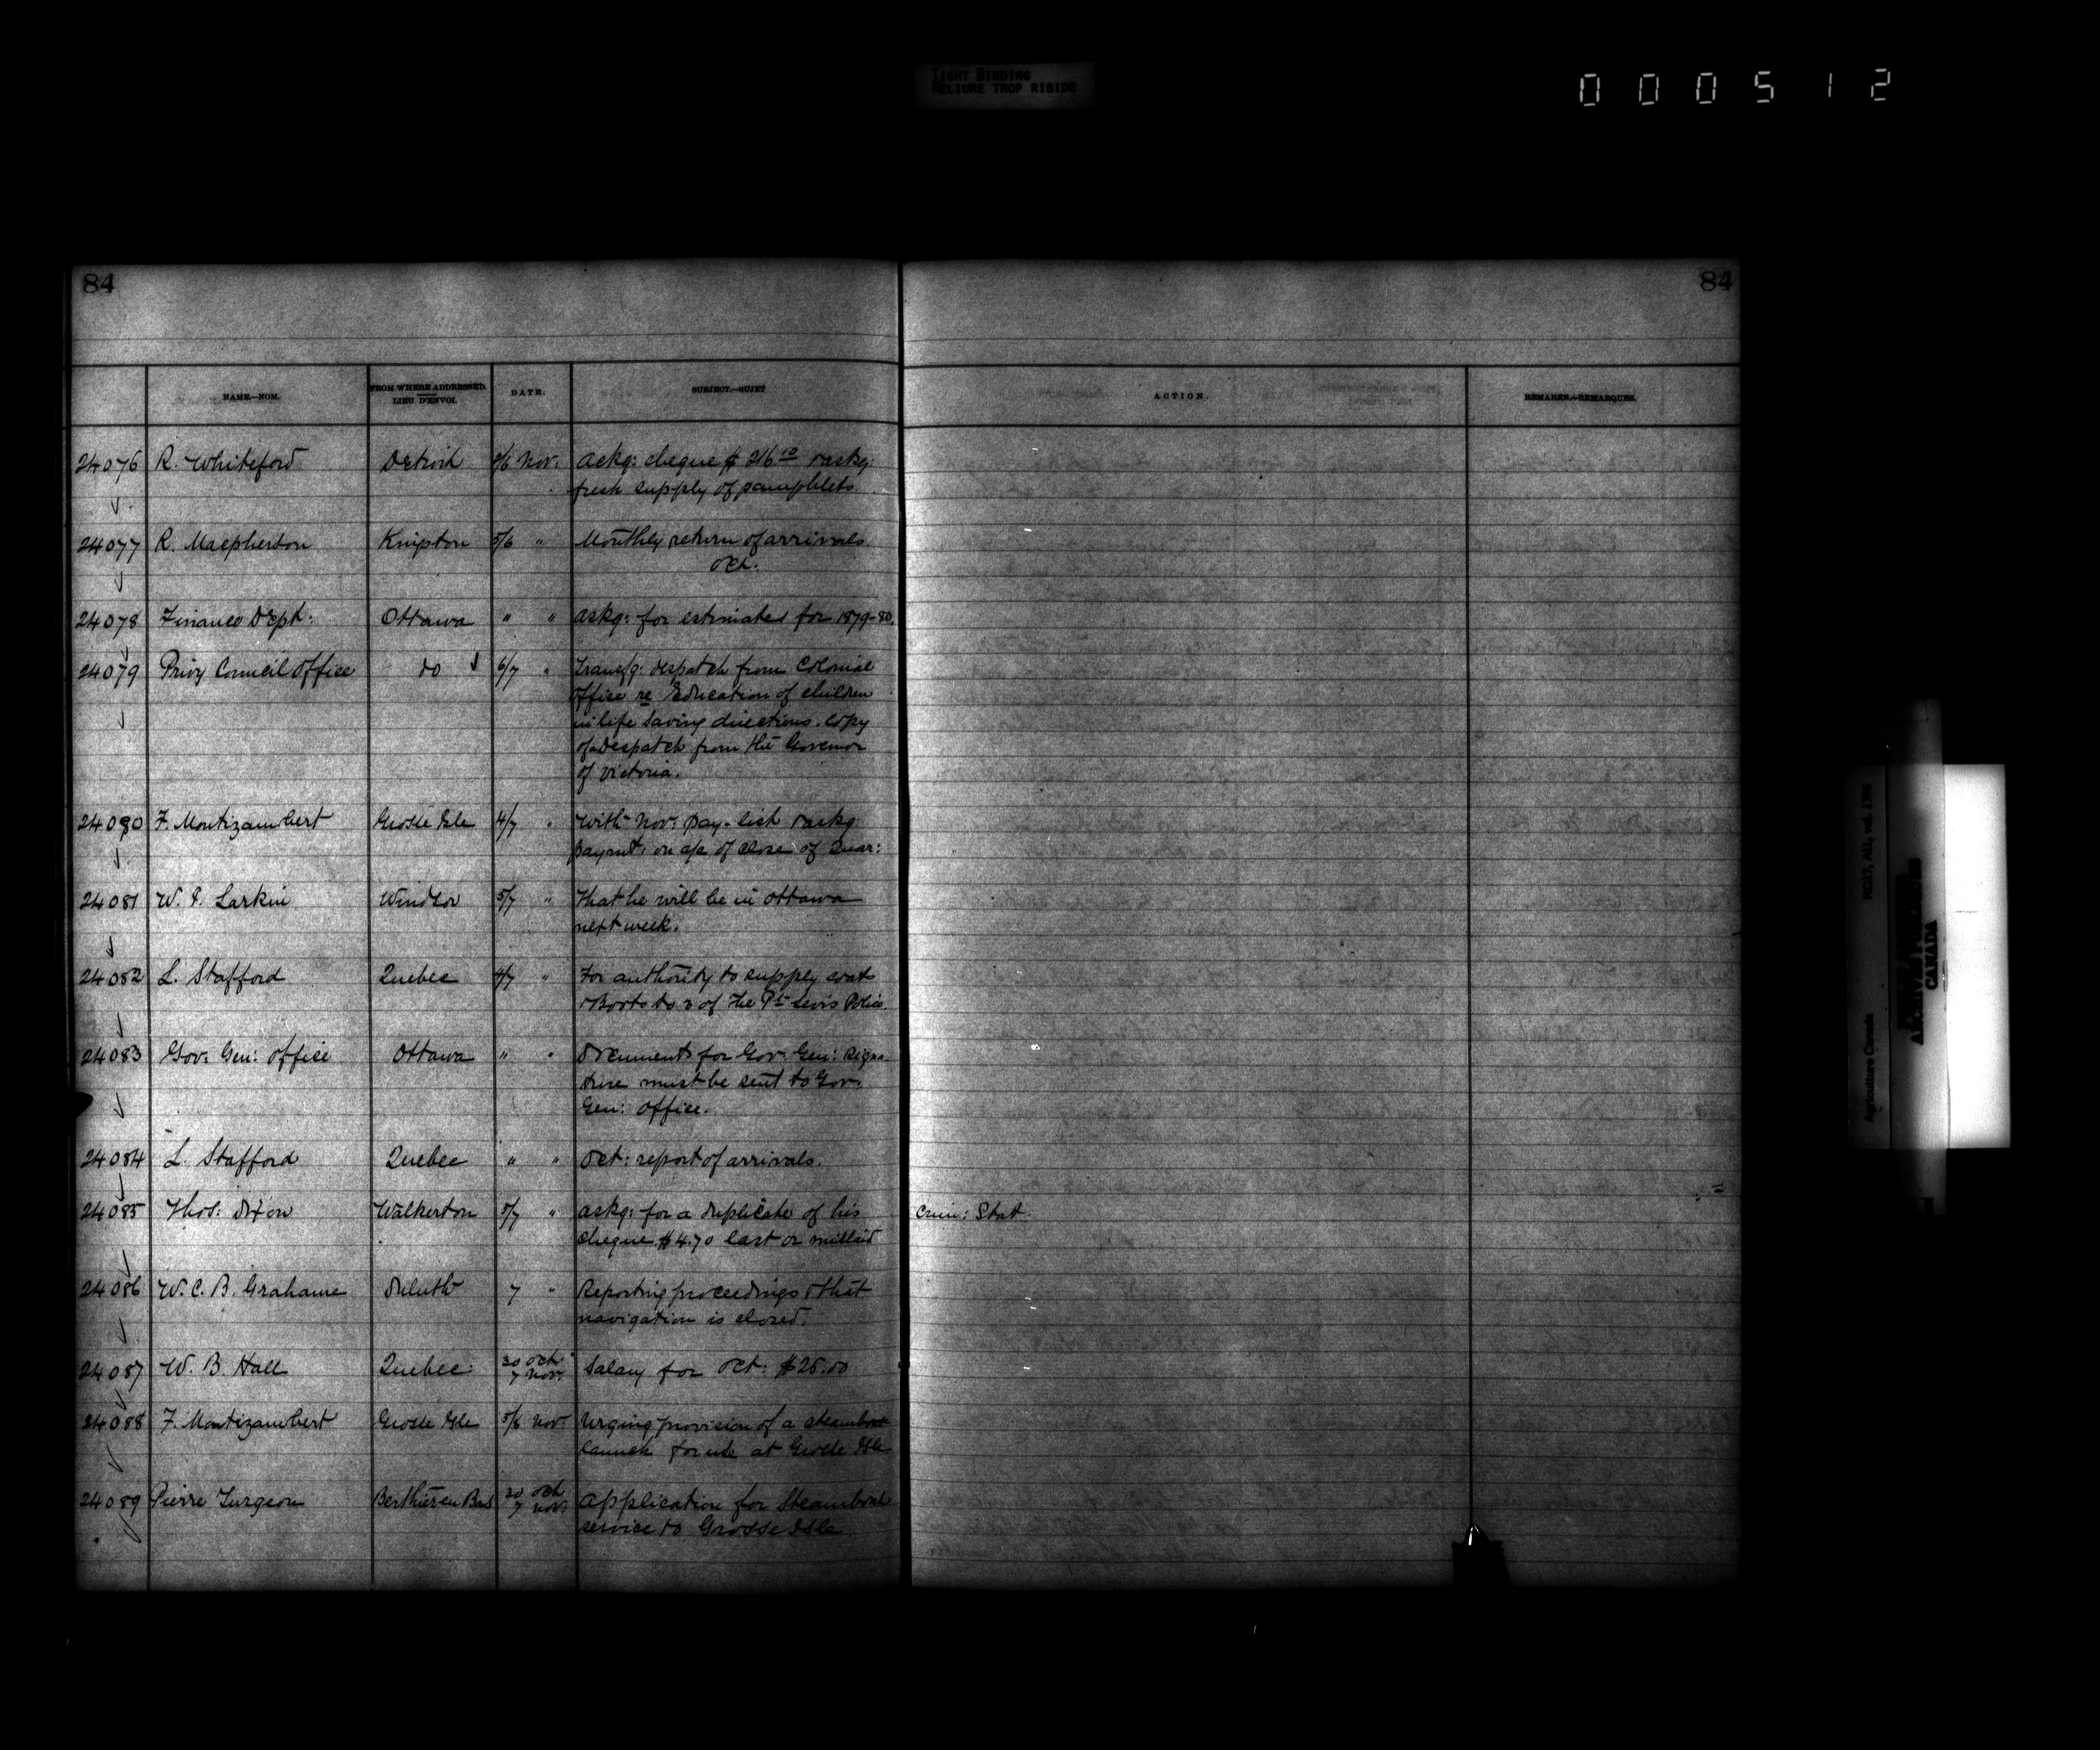 TIGHT BINDING
RELIURE TROP RIGIDE
000512
84
84
NAME.—NOM.
FROM WHERE ADDRESSED.
LIEU D'ENVOI.
DATE.
SUBJECT.—SUJET
ACTION.
REMARKS.—REMARQUES.
24076 R. Whiteford Detroit 2/6 Nov: Ackg: cheque $ 216 10 & askg:
fresh supply of pamphlets.
24077 R. Macpherson Kingston 5/6 " Monthly return of arrivals
Oct.
24078 Finance Dept: Ottawa " " Askg: for estimates for 1879-80.
24079 Privy Council Office do 6/7 " Transfg: despatch from Colonial
Office re Education of children
in life saving directions. Copy
of Despatch from the Govenor
of Victoria.
24080 F. Montizambert Grosse Isle 4/7 " With Nov: pay-list & askg:
paymt: on a/c of close of Quar:
24081 W. Larkin Windsor 5/7 " That he will be in Ottawa
next week.
24082 L. Stafford Quebec 4/7 " For authority to supply coats
& Boots to 2 of the Pt Levis Police.
24083 Gov: Gen: Office Ottawa " " Documents for Gov: Gen: signa-
ture must be sent to Gov:
Gen: Office.
24084 L. Stafford Quebec " " Oct: report of arrivals.
24085 Thos: Dixon Walkerton 5/7 " Askg: for a duplicate of his
cheque $4.70 lost or mislaid
Crim: Stat.
24086 W. C. B. Grahame Duluth 7 " Reporting proceedings & that
navigation is closed.
24087 W. B. Hall Quebec: 30 Oct
7 Nov: Salary for Oct: $25.00
24088 F. Montizambert Grosse Isle 5/8 Nov: Urging provision of a steamboat
launch for use at Grosse Isle
24089 Pierre Turgeon Berthier en Bas 30 Oct
7 Nov: Application for Steamboat
service to Grosse Isle
RG17, AII, vol. 1396
Agriculture Canada
CANADA